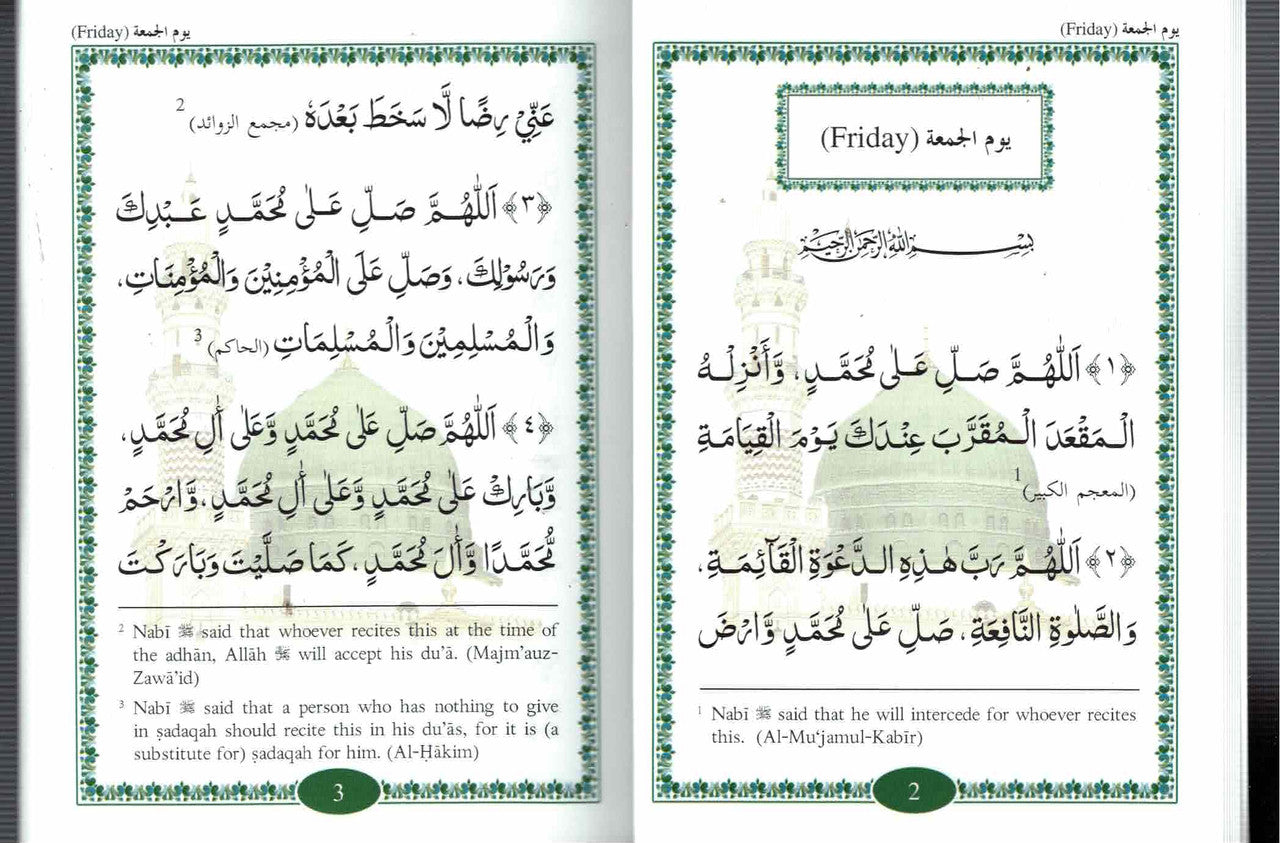 يوم الجمعة (Friday)
يوم الجمعة (Friday)
بِسْمِ اللهِ الرَّحْمٰنِ الرَّحِيْمِ
﴿١﴾ اَللّٰهُمَّ صَلِّ عَلٰى مُحَمَّدٍ، وَّأَنْزِلْهُ
الْمَقْعَدَ الْمُقَرَّبَ عِنْدَكَ يَوْمَ الْقِيَامَةِ
(المعجم الكبير) 1
﴿٢﴾ اَللّٰهُمَّ رَبَّ هٰذِهِ الدَّعْوَةِ الْقَآئِمَةِ،
وَالصَّلٰوةِ النَّافِعَةِ، صَلِّ عَلٰى مُحَمَّدٍ وَّارْضَ
1 Nabī ﷺ said that he will intercede for whoever recites
this. (Al-Mu‘jamul-Kabīr)
2
يوم الجمعة (Friday)
عَنِّيْ رِضًا لَّا سَخَطَ بَعْدَهٗ (مجمع الزوائد) 2
﴿٣﴾ اَللّٰهُمَّ صَلِّ عَلٰى مُحَمَّدٍ عَبْدِكَ
وَرَسُوْلِكَ، وَصَلِّ عَلَى الْمُؤْمِنِيْنَ وَالْمُؤْمِنَاتِ،
وَالْمُسْلِمِيْنَ وَالْمُسْلِمَاتِ (الحاكم) 3
﴿٤﴾ اَللّٰهُمَّ صَلِّ عَلٰى مُحَمَّدٍ وَّعَلٰى أٰلِ مُحَمَّدٍ،
وَّبَارِكْ عَلٰى مُحَمَّدٍ وَّعَلٰى أٰلِ مُحَمَّدٍ، وَّارْحَمْ
مُّحَمَّدًا وَّأٰلَ مُحَمَّدٍ، كَمَا صَلَّيْتَ وَبَارَكْتَ
2 Nabī ﷺ said that whoever recites this at the time of
the adhān, Allāh ﷻ will accept his du’ā. (Majm’auz-
Zawā’id)
3 Nabī ﷺ said that a person who has nothing to give
in ṣadaqah should recite this in his du’ās, for it is (a
substitute for) ṣadaqah for him. (Al-Ḥākim)
3